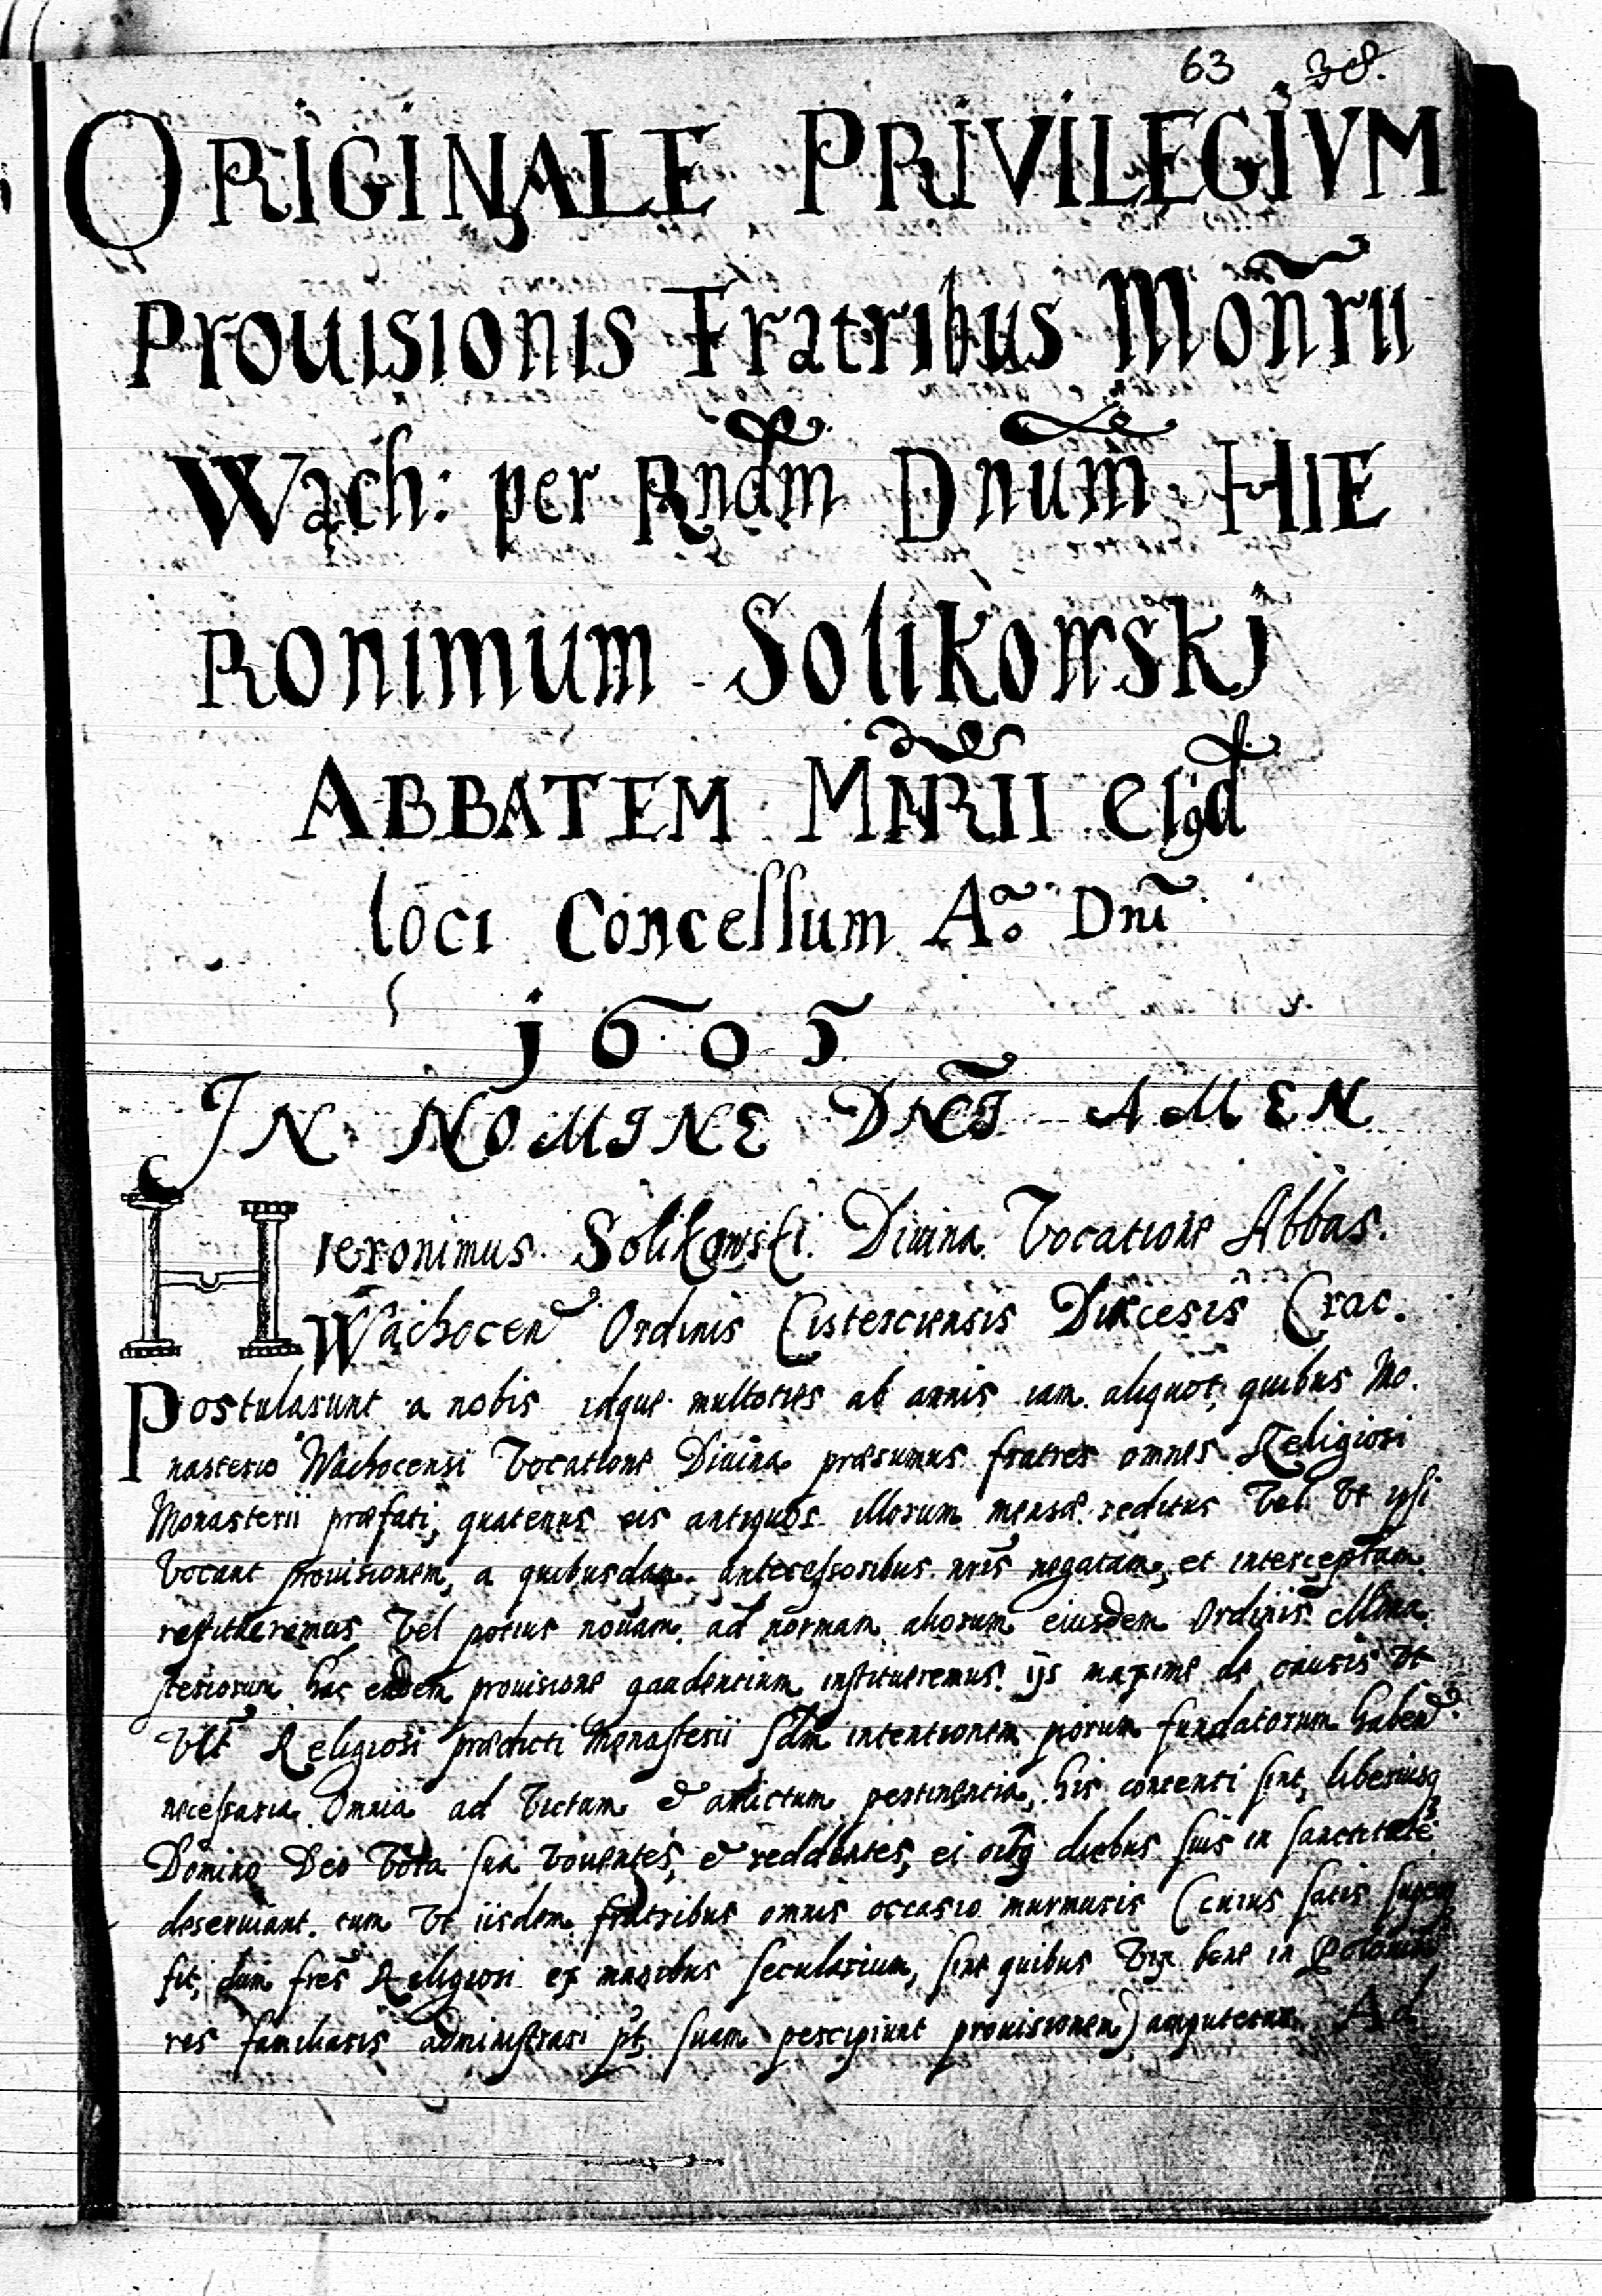 63 38.
ORIGINALE PRIVILEGIVM
Prouisionis Fratribus Moñrii
Wąch: per Rndm̃ Dnum̃ HIE
Ronimum Solikowskj
ABBATEM MÑRII eiꝰd
loci Concessum Aº Dnĩ
1605
IN NOMINE DNĨ AMEN
Hieronimus Solikowski Diuina Vocatione Abbas.
Wąchocen Ordinis Cisterciensis Diæcesis Crac.
Postularunt a nobis idque multoties ab annis iam aliquot, quibus Mo.
nasterio Wąchocensi Vocatione Diuina præsumus fratres omnes Religiosi
Monasterii præfati, quatenus eis antiquos illorum mensæ reditus Vel Vt ipsi
Vocant prouisionem, a quibusdam antecessoribus nr̃is negatam, et interceptam
restitueremus Vel potius nouam ad normam aliorum eiusdem Ordinis Mona
steriorum hac eadem prouisione gaudentium institueremus. ijs maxime de causis Vt
Vlt Religiosi prædicti Monasterii sdm̃ intentionem piorum fundatorum haben
necessaria omnia ad Victum & amictum pertinentia, his contenti sint, liberiusq
Domino Deo Vota sua Vouentes, & reddentes, ei oibq diebus suis in sanctitate
deseruiant. tum Vt iisdem fratribus omnis occasio murmuris (cuius satis
fit, dum fres̃ Religiosi ex manibus secularium, sine quibus Vix bene in Polonia
res familiaris administrari pt̃ suam percipiunt prouisionem) amputetur. Ad